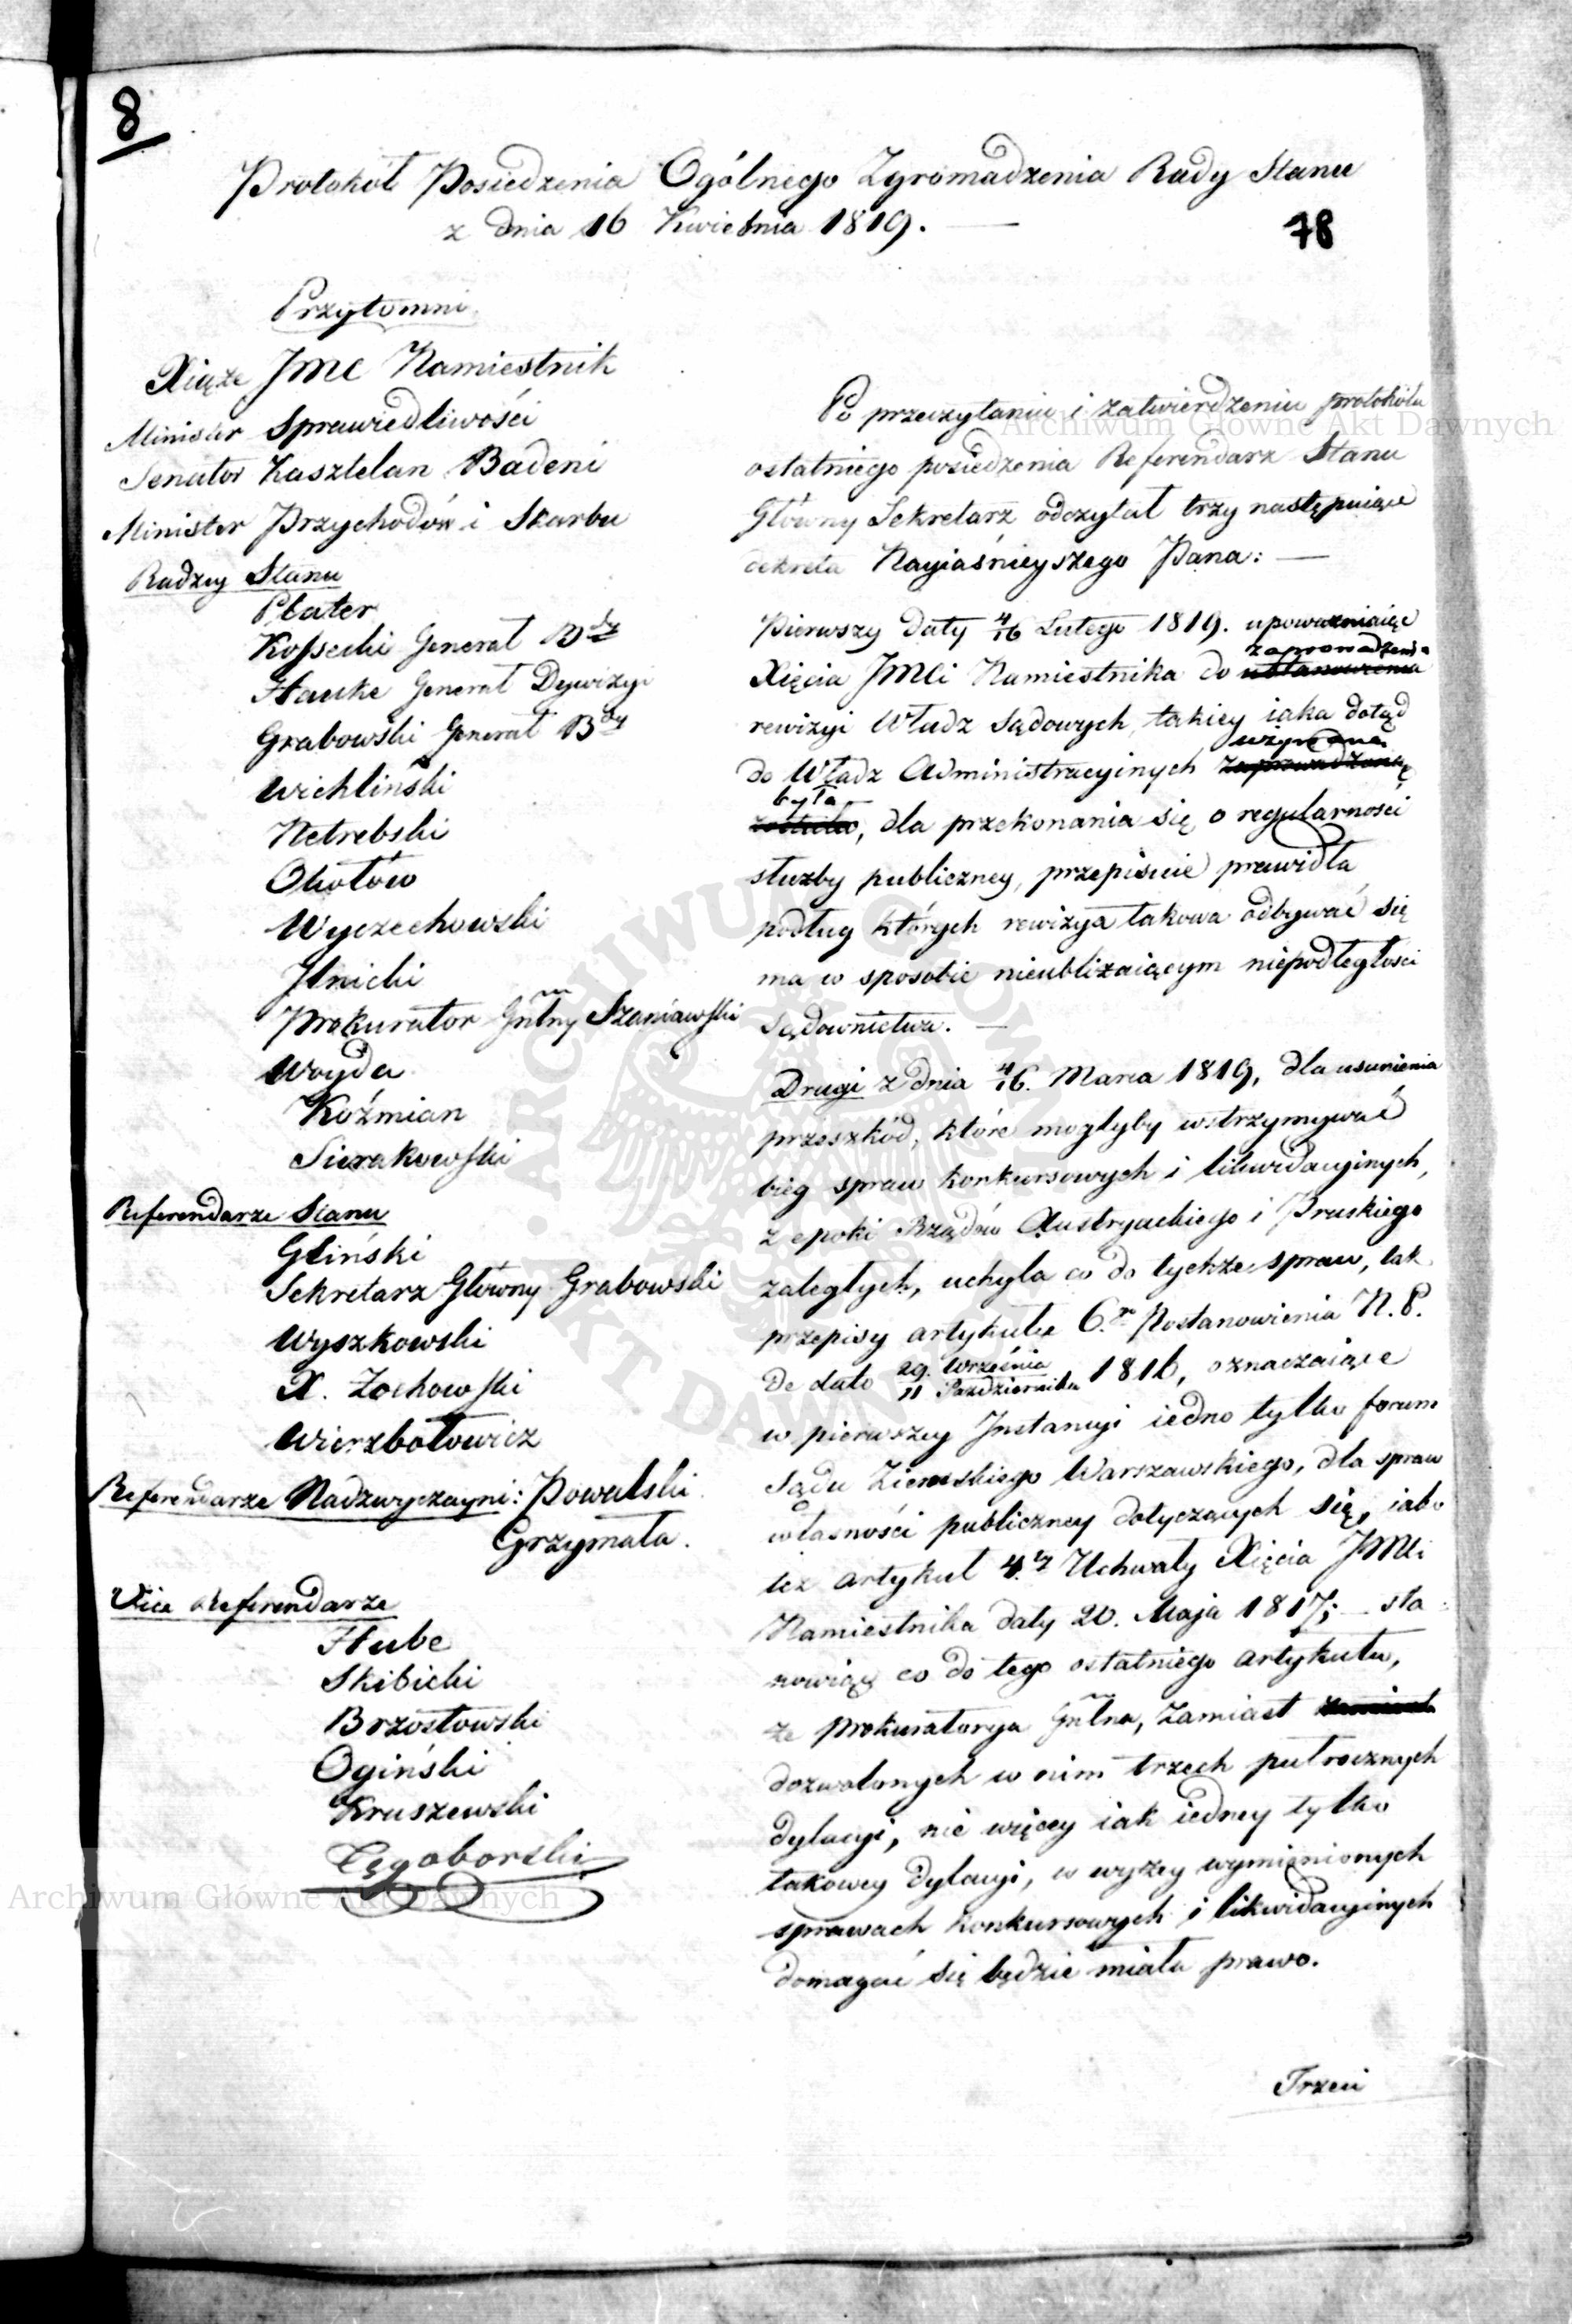 8
Protokół Posiedzenia Ogólnego Zgromadzenia Rady Stanu
z dnia 16 Kwietnia 1819. —
78
Przytomni
Xiąże JMC Namiestnik
Minister Sprawiedliwości
Senator Kasztelan Badeni
Minister Przychodów i Skarbu
Radzcy Stanu
Plater
Kossecki Generał B.dy
Hauke Generał Dywizyi
Grabowski Generał B.dy
Wichliński
Netrebski
Okołów
Wyczechowski
Jlnicki
Prokurator Gnlny Szaniawski
Woyda
Koźmian
Sierakowski
Referendarze Stanu
Gliński
Sekretarz Główny Grabowski
Wyszkowski
X. Zochowski
Wierzbołowicz
Referendarze Nadzwyczayni: Powalski.
Grzymała.
Vice Referendarze
Hube
Skibicki
Brzostowski
Ogiński
Kruszewski
Tęgoborski
Po przeczytaniu i zatwierdzeniu protokółu
ostatniego posiedzenia Referendarz Stanu
Główny Sekretarz odczytał trzy następuiące
dekreta Nayiaśnieyszego Pana: —
Pierwszy daty 4/16 Lutego 1819. upoważniaiące
zaprowadzenia
Xięcia JMCi Namiestnika do ustanowienia
rewizyi Władz Sądowych, takiey iaka dotąd
używana
do Władz Administracyinych zaprowadzoną
była
została, dla przekonania się o regularności
służby publiczney, przepisuie prawidła
podług których rewizya takowa odbywać się
ma w sposobie nieubliżaiącym niepodległości
Sądownictwa. —
Drugi z dnia 4/16. Marca 1819, dla usunienia
przeszkód, które mogłyby wstrzymywać
bieg spraw konkursowych i likwidacyinych,
z epoki Rządów Austryackiego i Pruskiego
zaległych, uchyla co do tychże spraw, tak
przepisy artykułu 6.go Postanowienia N. P.
de dato 29. Września / 11 Października 1816, oznaczaiące
w pierwszey Jnstancyi iedno tylko forum
Sądu Ziemskiego Warszawskiego, dla spraw
własności publiczney dotyczących się, iako
też artykuł 4.ty Uchwały Xięcia JMCi
Namiestnika daty 20. Maja 1817; — sta-
nowiąc co do tego ostatniego artykułu,
że Prokuratorya Gnlna, zamiast zamiast
dozwolonych w nim trzech półrocznych
dylacyi, nie więcey iak iedney tylko
takowey dylacyi, w wyżey wymienionych
sprawach konkursowych i likwidacyinych
domagać się będzie miała prawo.
Trzeci
Archiwum Główne Akt Dawnych
Archiwum Główne Akt Dawnych
ARCHIWUM GŁÓWNE AKT DAWNYCH